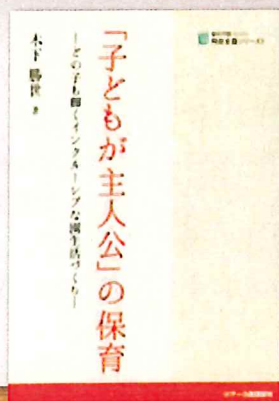 「子どもが主人公」の保育
―どの子も輝くインクルーシブな園生活づくり―
木下 勝世 著